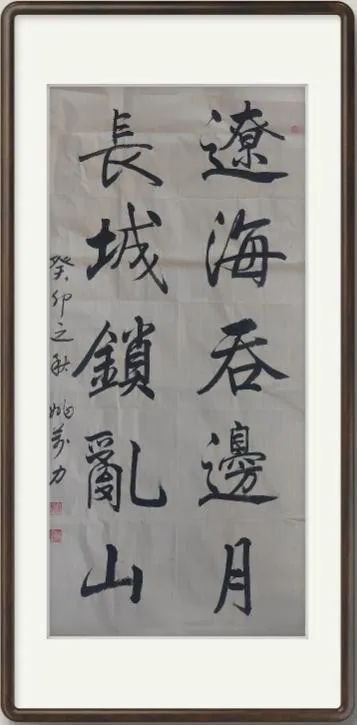 遼海吞邊月
長城鎖亂山
癸卯之秋 萬力